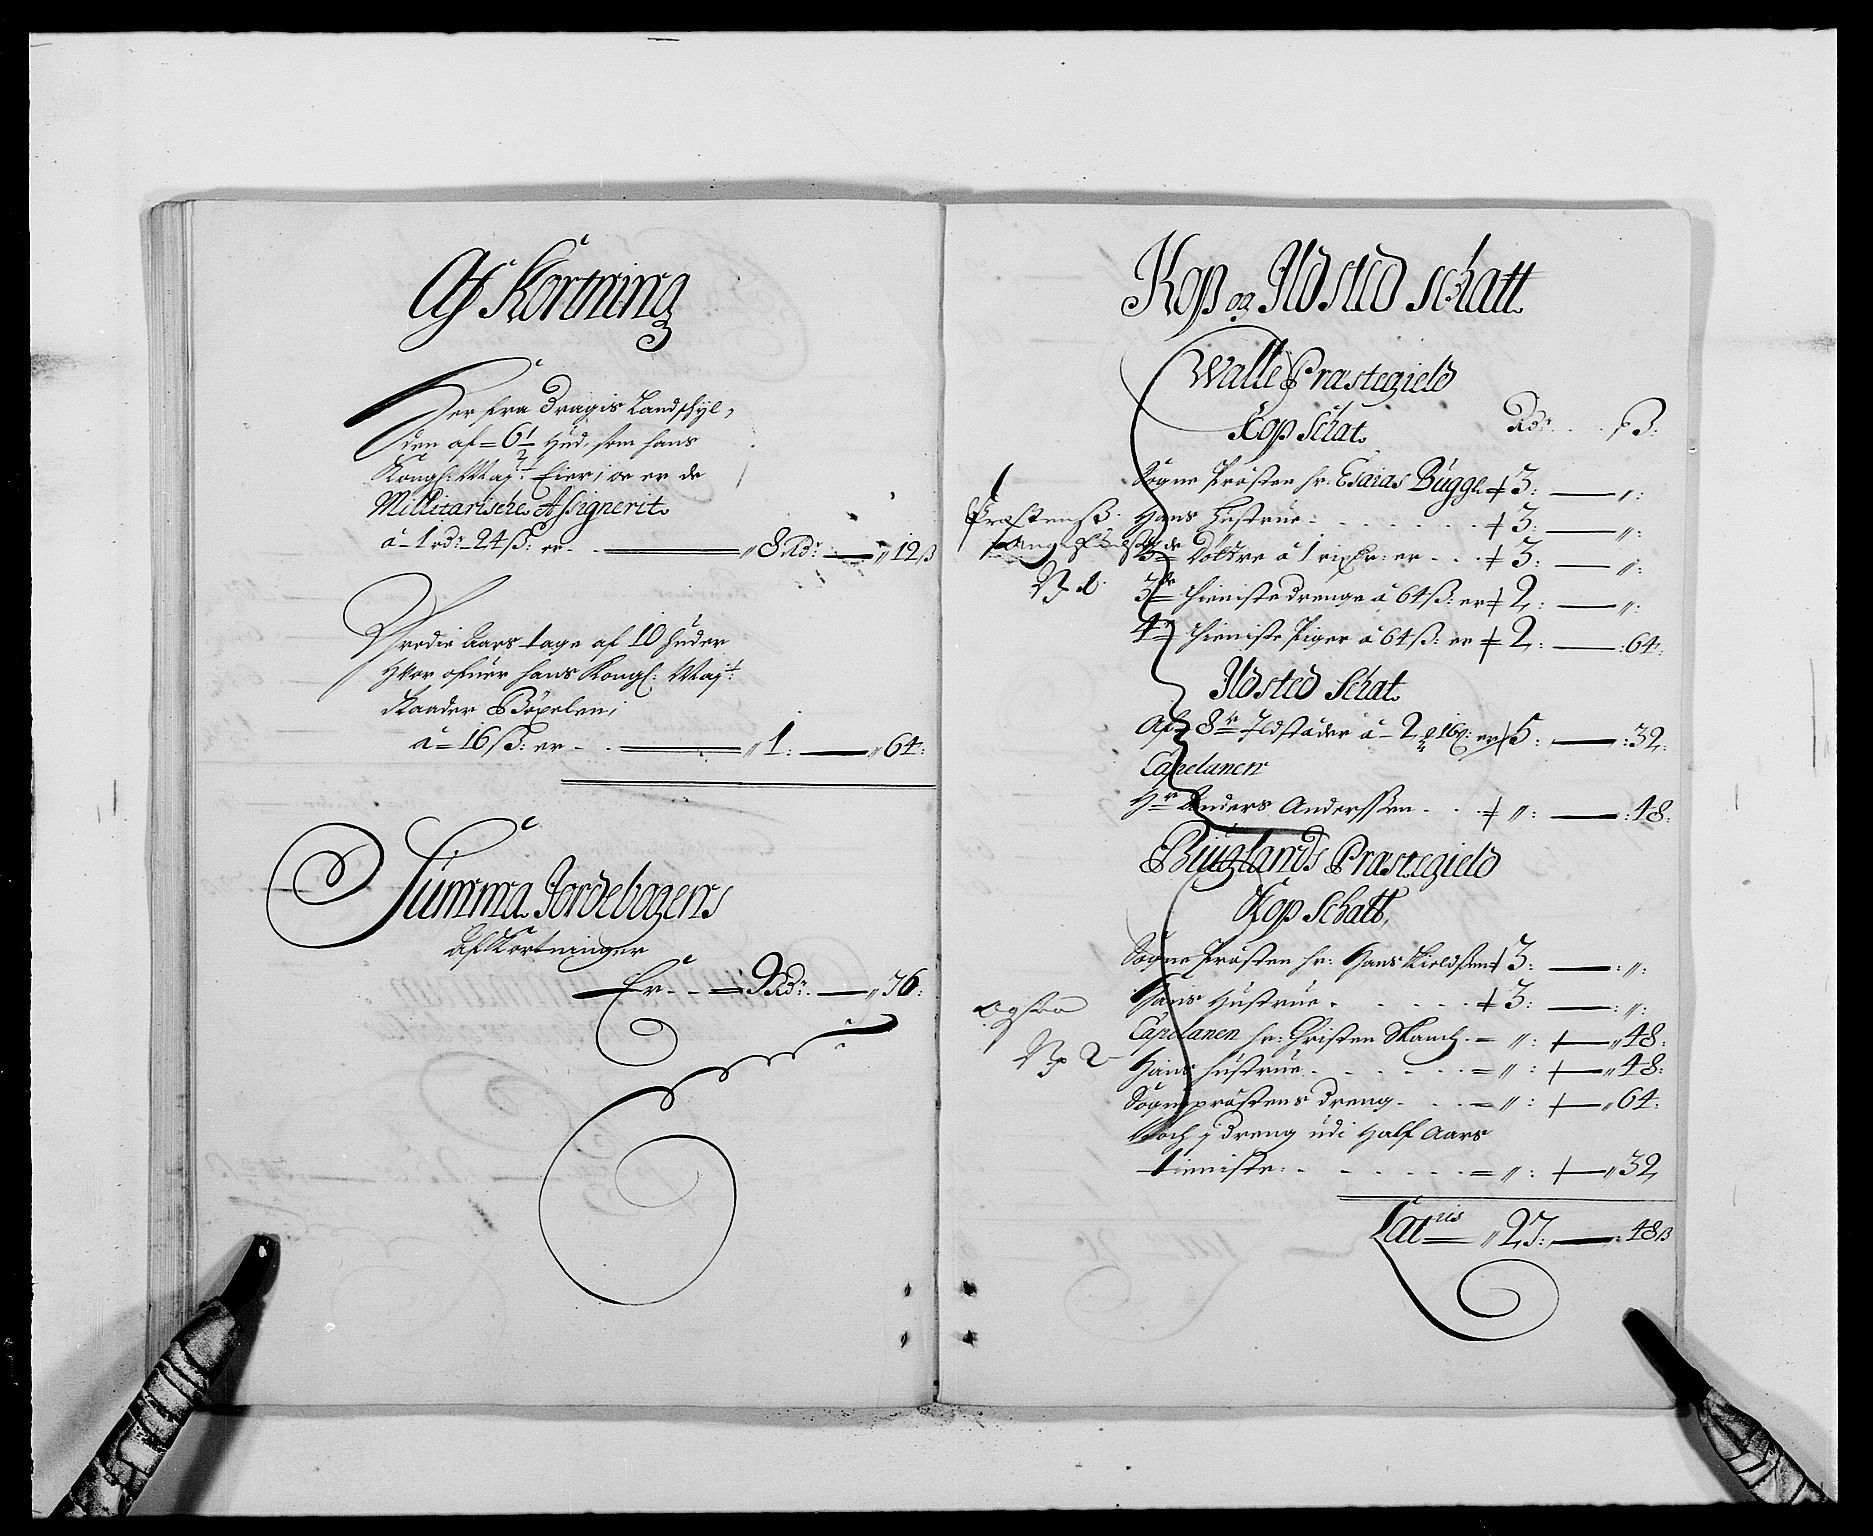 Af Kortning
Her fra dragis Landschyl,
den af = 6 1/2 Hud, som hans
Kongl: Maj:t Eier, oc er de
Millitarische Assignerit
à - 1 rdr - 24 ß: er - - 8 Rdr - " 12 ß
Tredie Aars tage af 10 huder
Hvor ofuer hans Kongl: Maj:t
Raader Böxelen,
à = 16 ß: er - - " 1: - " 64:
Summa Jordebogens
Afkortninger
Er - - 9 Rdr: - " 76:
Kop og Ildsted Schatt
Walle Præstegield
Kop Schat. Rdr: - - ß:
Sogne Præsten hr: Esaias Bugge + 3: - ":
Hans Hustrue - - - + 3: - ":
Præstens ß:
3de Döttre à 1 rixdr: er - - + 3: - ":
No 1
3de tieniste drenge à 64 ß: er + 2: - ":
4re tieniste Piger à 64 ß: er + 2: - : 64:
Ildsted Schat.
Af 8te Ildstæder à - 2 16 ß: er + 5: - : 32,
Capelanen
Hr Anders Anderssen - - + ": - : 48:
Buiglands Præstegield
Kop Schatt,
Sogne Præsten hr: Hans Kieldsen + 3: - : ":
Hans Hustrue - - - + 3: - : ":
No 2
Capelanen hr: Christen Munch - = ": + " 48:
Hans hustrue - - - = ": + " 48:
Sognepræstens dreng - - = ": + " 64:
Noch 1 dreng udi Half Aars
tieniste: - - - = ": + " 32,
Latris " 27: - : 48 ß